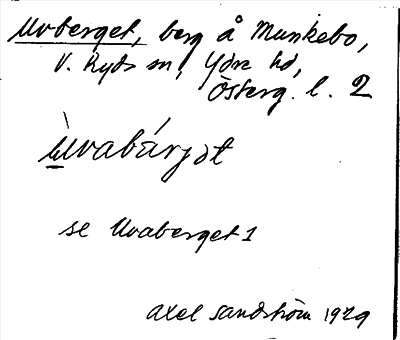 Uvberget, berg å Munkebo,
V. Ryds sn, Ydre hd,
Österg. l. 2
Ùvabárjət
se Uvaberget 1
Axel Sandström 1929